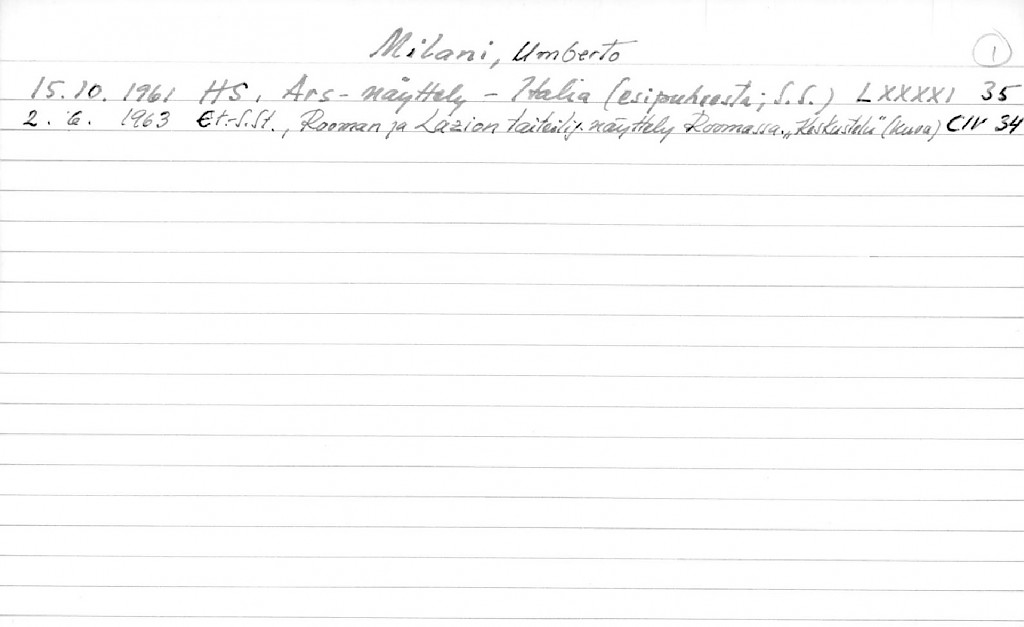 Milani, Umberto
1
15.10.1961 HS, Ars-näyttely - Italia (esipuheesta; S.S.) LXXXXI 35
2. 6. 1963 Et.-S.St., Rooman ja Lazion taiteilij. näyttely Roomassa. "Keskustelu" (kuva) CIV 34